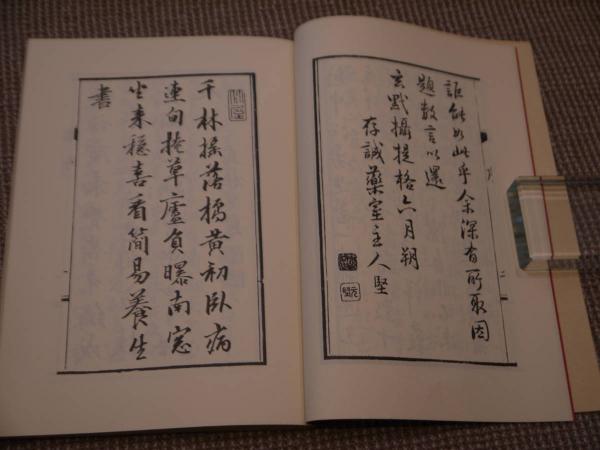 詎能如此乎余深有所取因
題数言以還
玄黓攝提格六月朔
存誠藥室主人堅
千林搖落橘黄初臥病
連旬掩草廬負曝南窓
生来穏喜看簡易養生
書